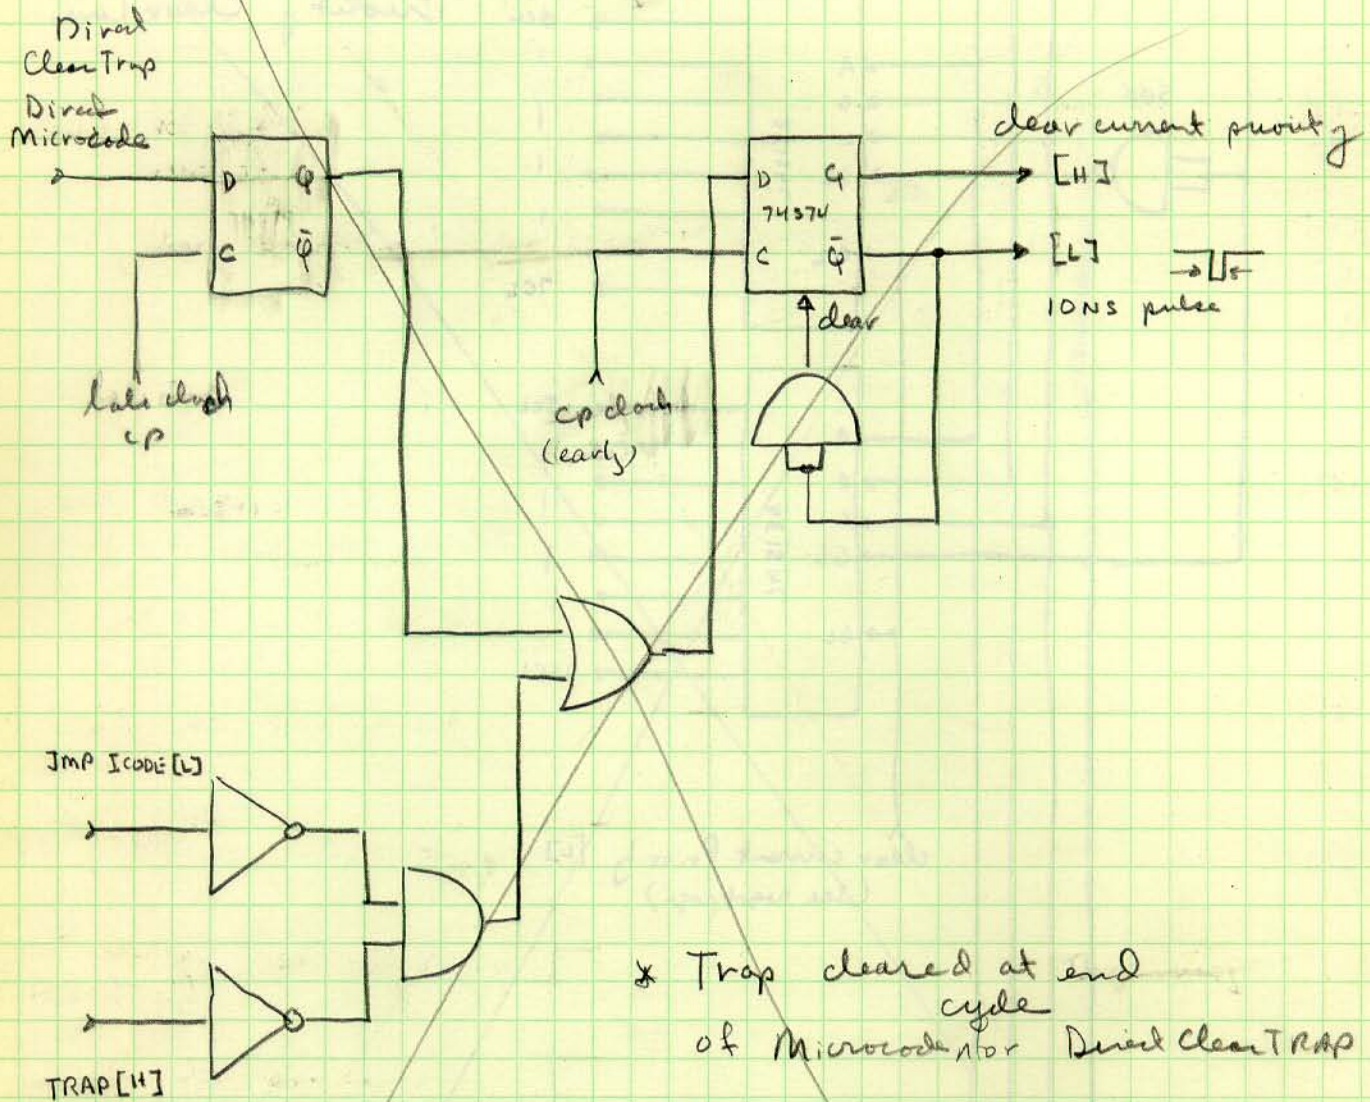 Direct
Clear Trap
Direct
Microcode
D Q
C Q̄
late clock
cp
cp clock
(early)
D Q
74374
C Q̄
clear
clear current priority
[H]
[L]
10NS pulse
JMP ICODE[L]
TRAP[H]
* Trap cleared at end
cycle
of Microcode or Direct Clear TRAP